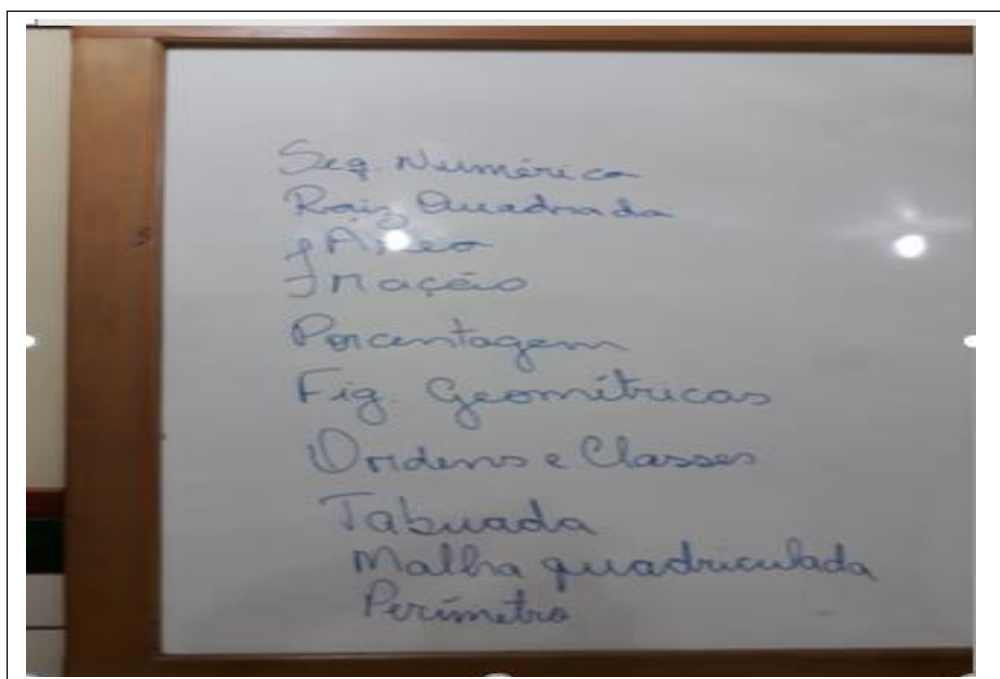 Seq. Numérica
Raiz Quadrada
Área
Fração
Porcentagem
Fig. Geométricas
Ordens e Classes
Tabuada
Malha quadriculada
Perímetro